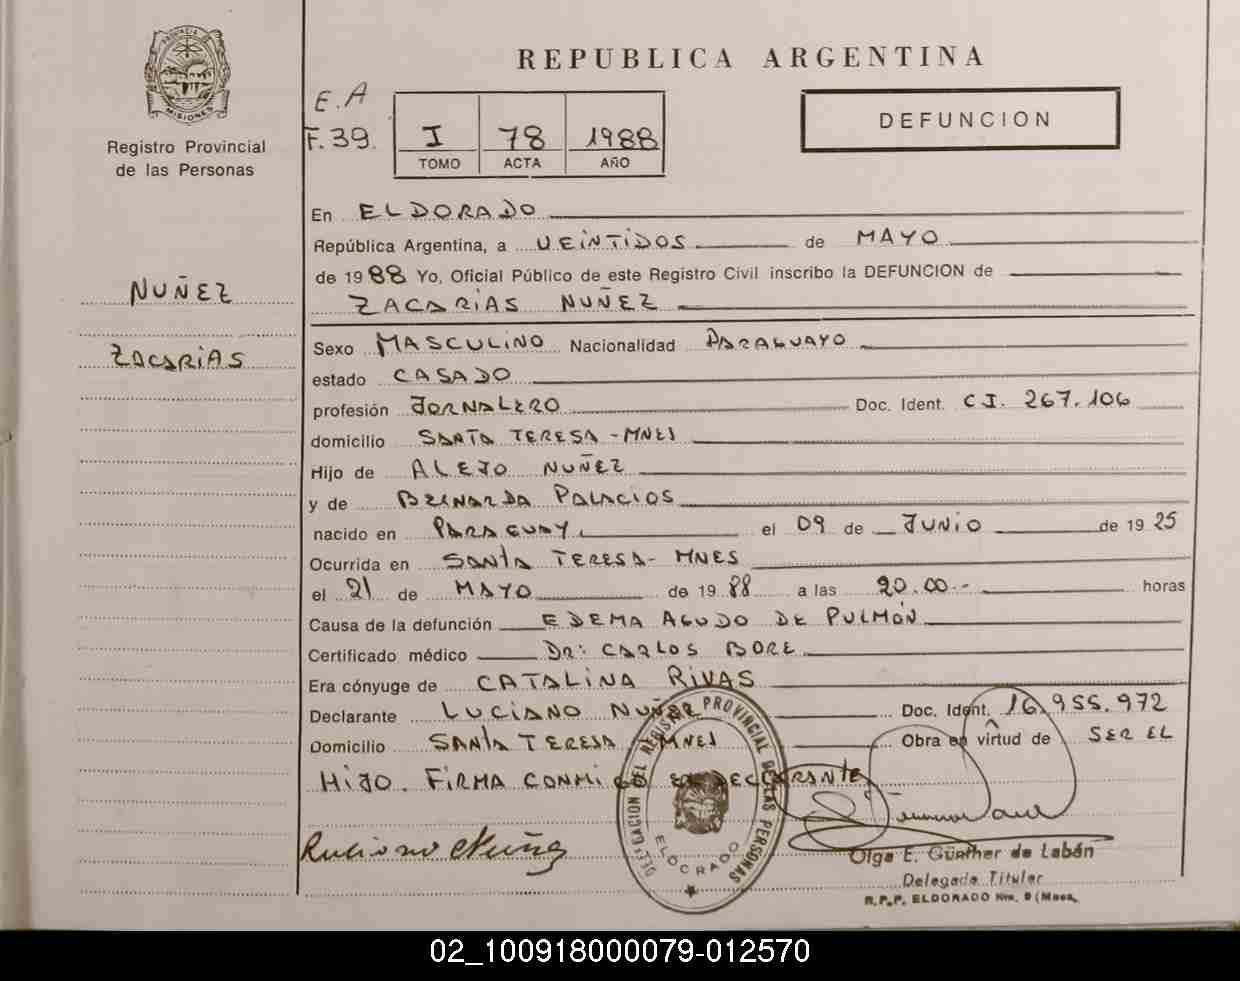 PROVINCIA DE
MISIONES
Registro Provincial
de las Personas
NUÑEZ
ZACARIAS
REPUBLICA ARGENTINA
E.A
F.39.
I 78 1988
TOMO ACTA AÑO
DEFUNCION
En ELDORADO
República Argentina, a VEINTIDOS de MAYO
de 1988 Yo, Oficial Público de este Registro Civil inscribo la DEFUNCION de
ZACARIAS NUÑEZ
Sexo MASCULINO Nacionalidad PARAGUAYO
estado CASADO
profesión JORNALERO Doc. Ident. C.I. 267.106
domicilio SANTA TERESA - MNES
Hijo de ALEJO NUÑEZ
y de BERNARDA PALACIOS
nacido en PARAGUAY el 09 de JUNIO de 1925
Ocurrida en SANTA TERESA - MNES
el 21 de MAYO de 1988 a las 20.00.- horas
Causa de la defunción EDEMA AGUDO DE PULMÓN
Certificado médico Dr: CARLOS BORE
Era cónyuge de CATALINA RIVAS
Declarante LUCIANO NUÑEZ Doc. Ident. 16.955.972
Domicilio SANTA TERESA MNES Obra en virtud de SER EL
HIJO. FIRMA CONMIGO EL DECLARANTE
DELEGACION DEL REGISTRO PROVINCIAL DE LAS PERSONAS
ELDORADO
Nuñez
Olga E. Günther de Labán
Delegada Titular
R.P.P. ELDORADO Nro. 9 (Mnes.
02_100918000079-012570